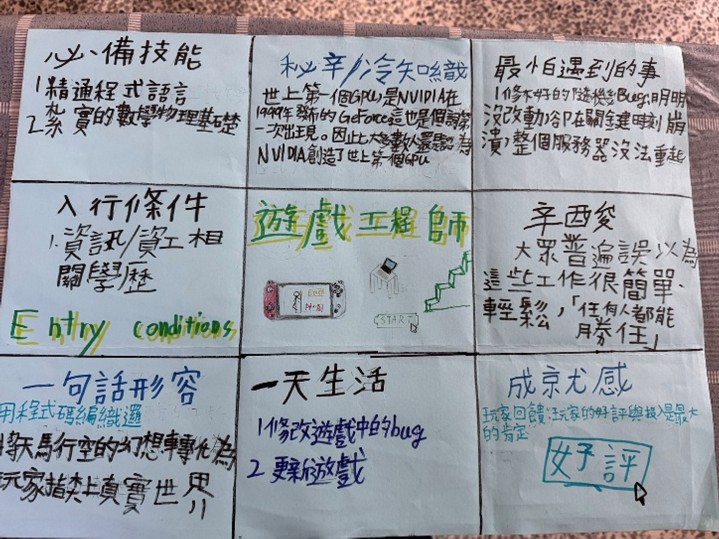 必備技能
1.精通程式語言
2.紮實的數學物理基礎
秘辛/冷知識
世上第一個GPU是NVIDIA在
1999年發佈的GeForce這也是個詞第
一次出現。因此大多數人還是認為
NVIDIA創造了世上第一個GPU
最怕遇到的事
1.修不好的「隨機」Bug,明明
沒改動,卻在關鍵時刻崩
潰,整個服務器沒法重起
入行條件
1.資訊/資工相
關學歷
Entry conditions
遊戲工程師
START
辛酉夋
大眾普遍誤以為
這些工作很簡單、
輕鬆,「任何人都能
勝任」
一句話形容
用程式碼編織邏
將天馬行空的幻想轉化為
玩家指尖上真實世界
一天生活
1.修改遊戲中的bug
2.更新遊戲
成京尤感
玩家回饋:玩家的好評與投入是最大
的肯定
好評